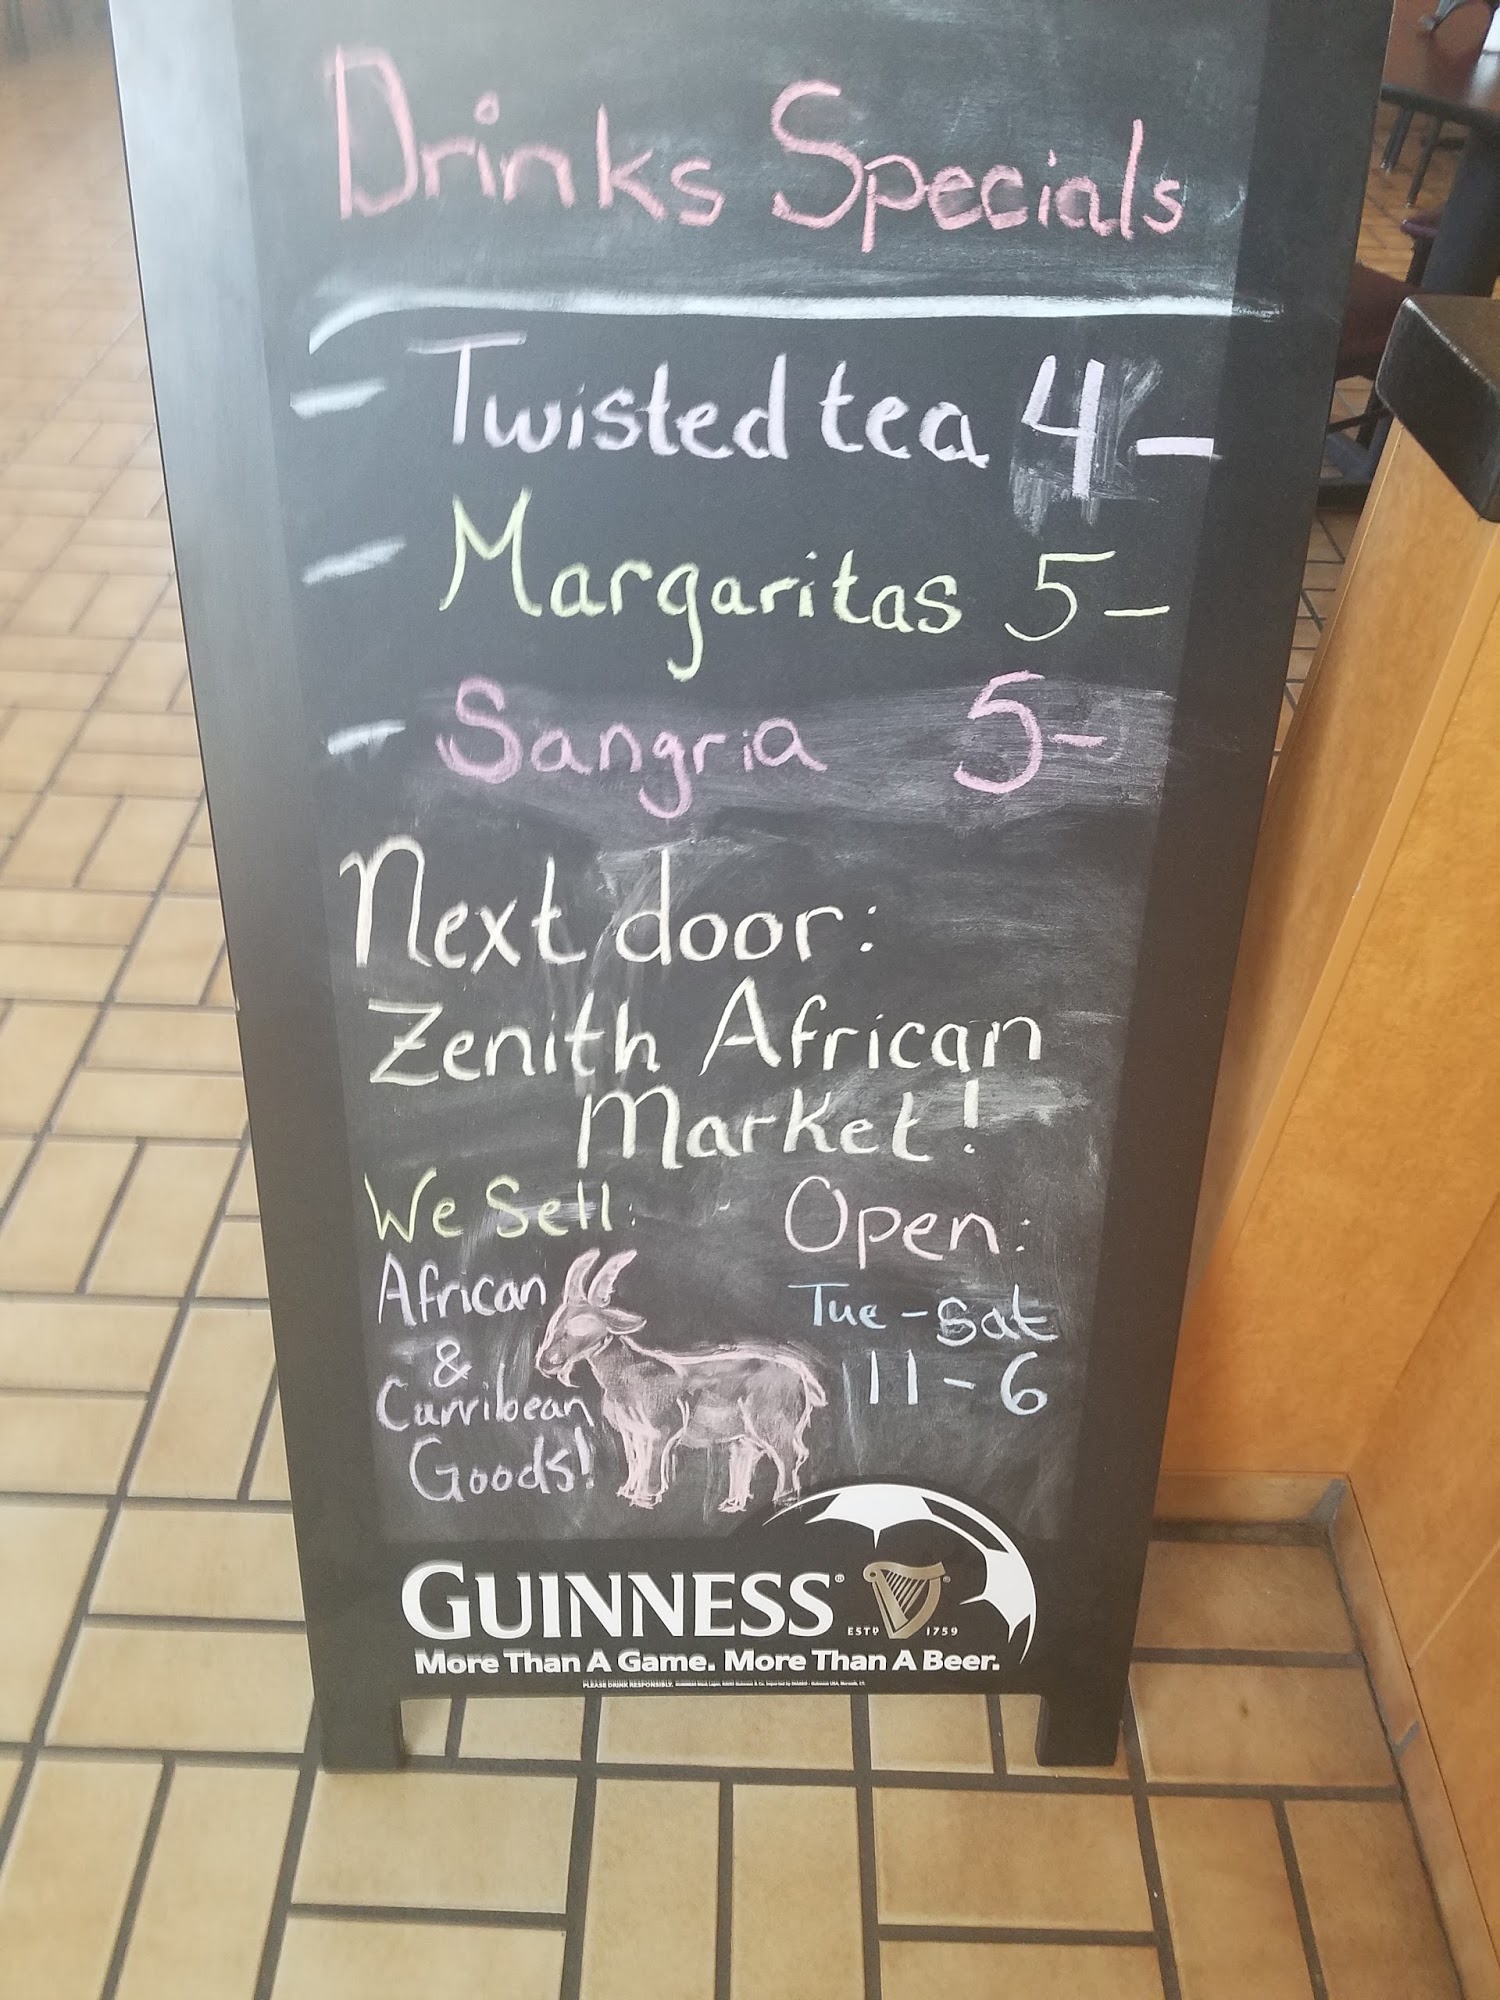 Drinks Specials
- Twisted tea 4 -
- Margaritas 5 -
- Sangria 5 -
Next door:
Zenith African
Market!
We Sell:
African
&
Carribean
Goods!
Open:
Tue - Sat
11 - 6
GUINNESS®
ESTD 1759
More Than A Game. More Than A Beer.
PLEASE DRINK RESPONSIBLY.